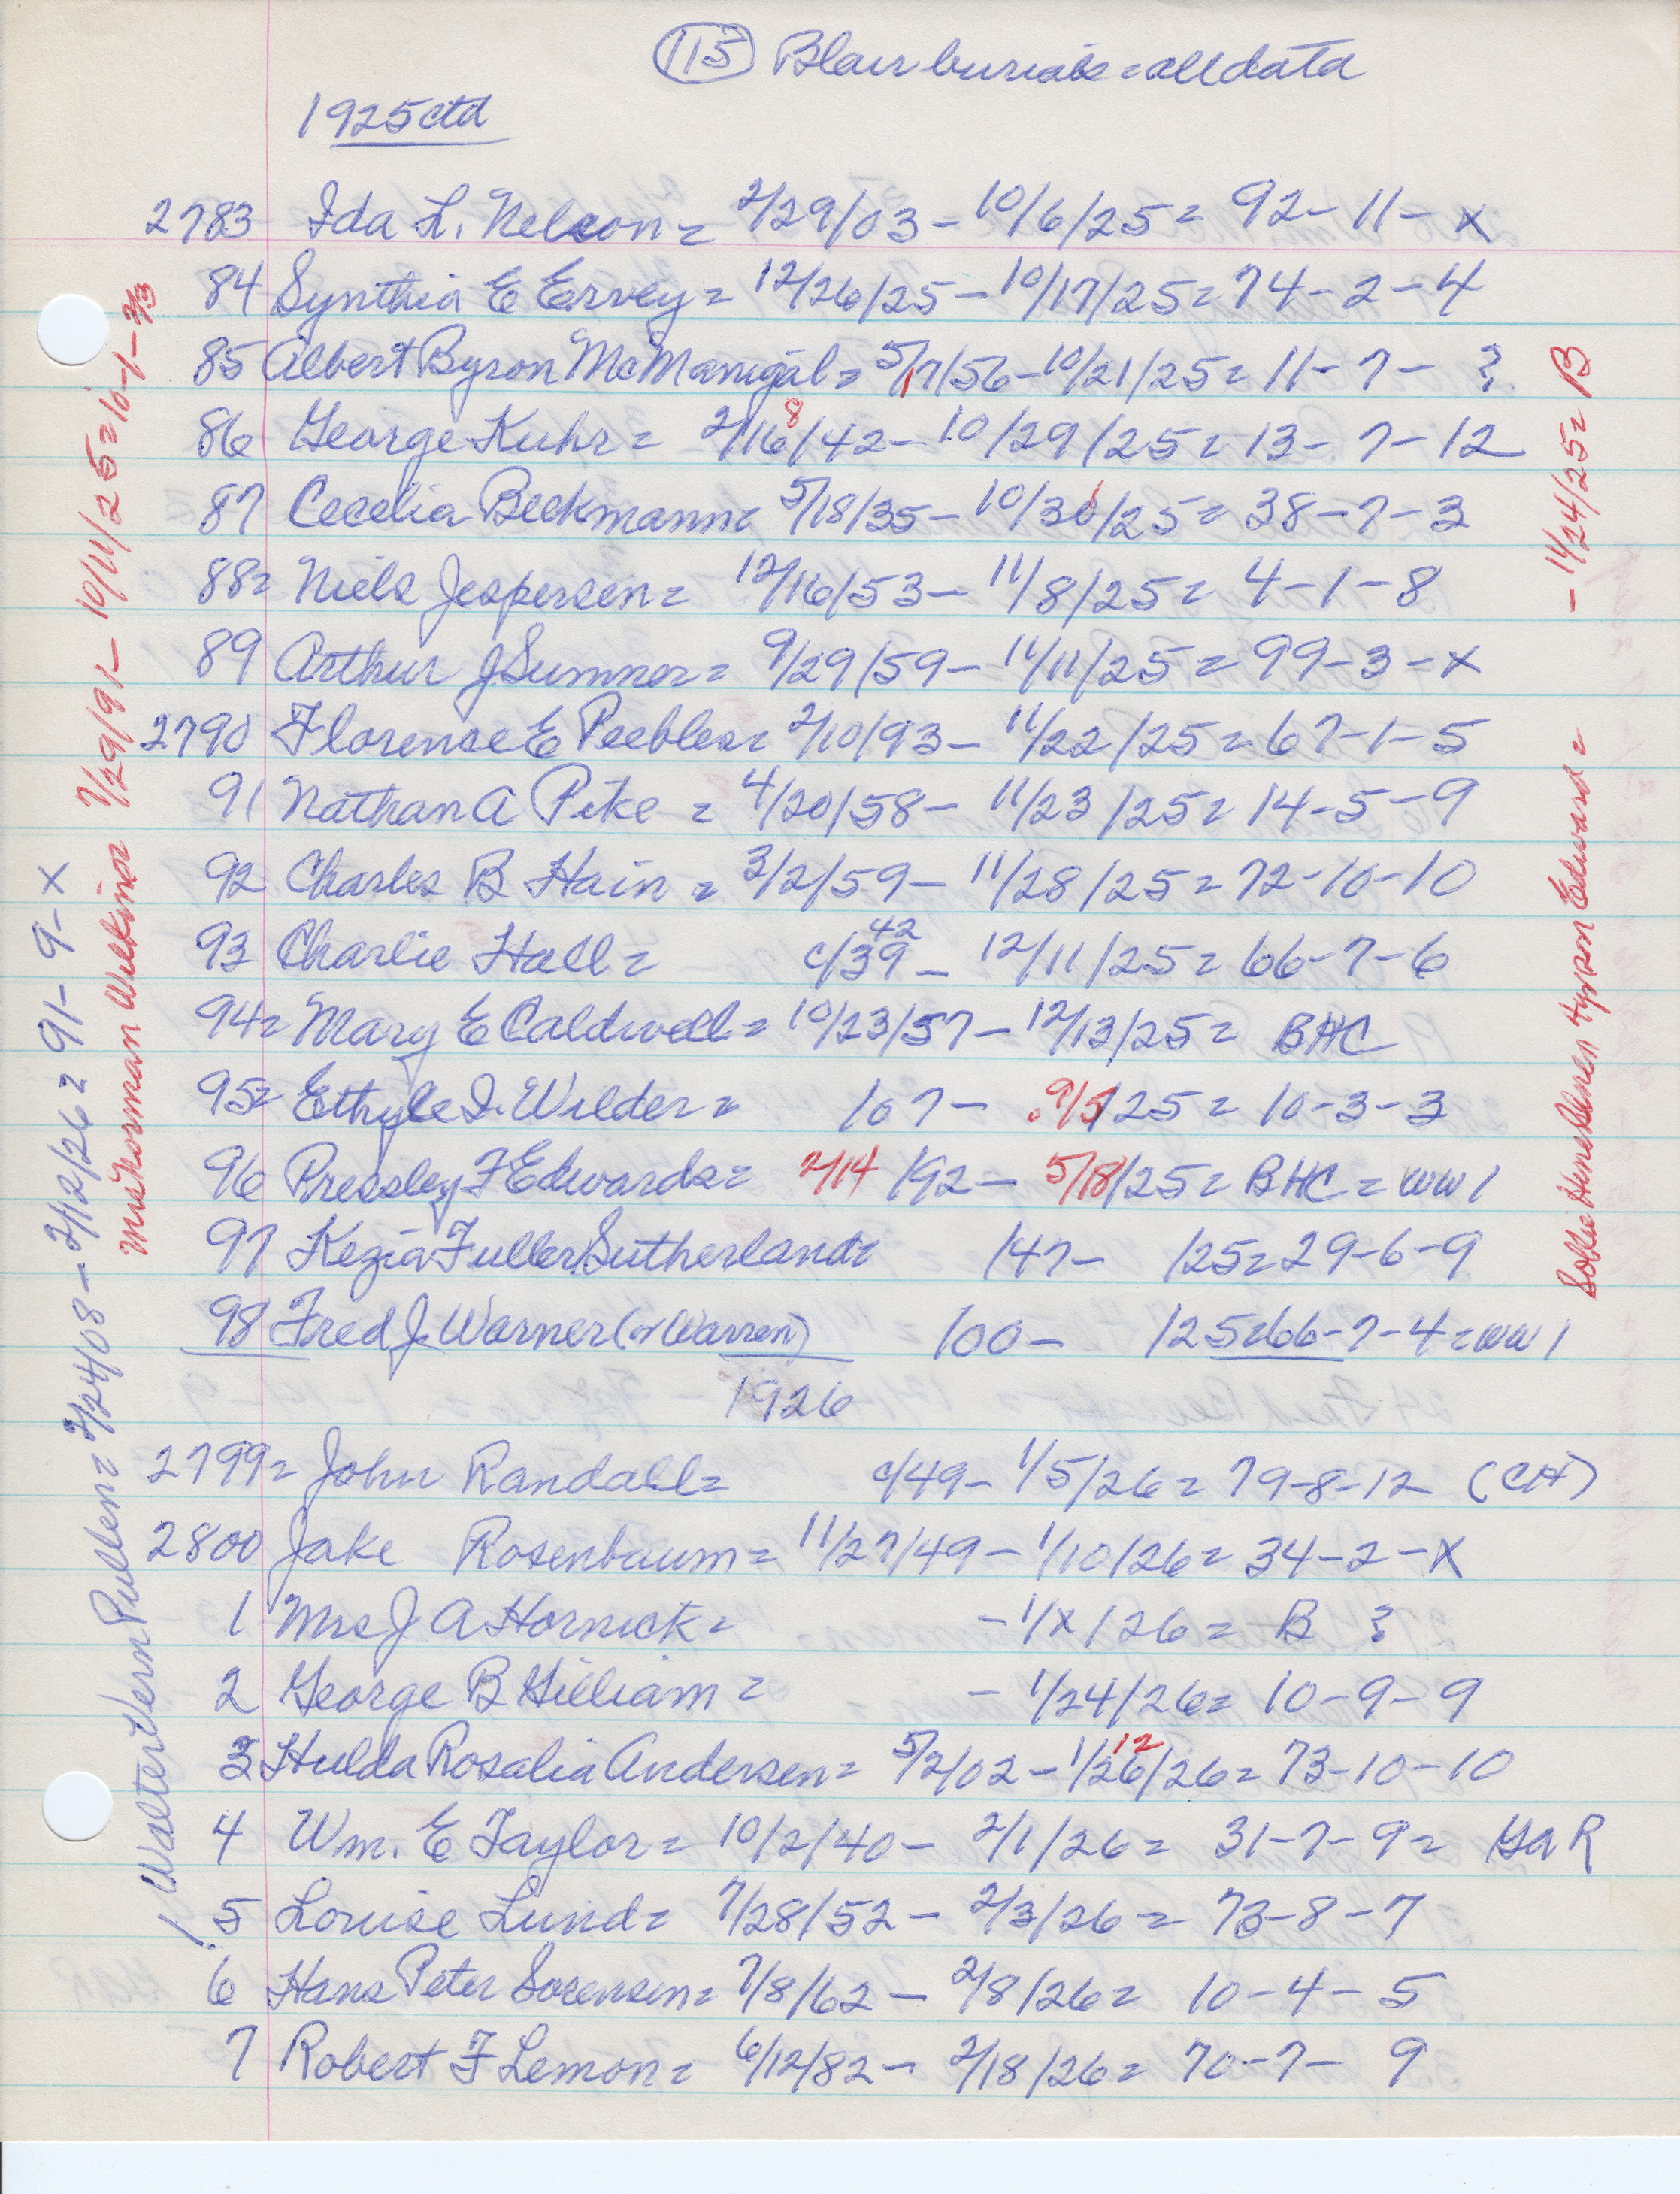 (115) Blair burials = all data
1925 ctd
2783 Ida L. Nelson = 2/29/03 - 10/6/25 = 92 - 11 - x
84 Synthia E Ervey = 12/26/25 - 10/17/25 = 74 - 2 - 4
85 Albert Byron McManigal = 5/17/56 - 10/21/25 = 11 - 7 - ?
8
86 George Kuhr = 2/16/42 - 10/29/25 = 13 - 7 - 12
87 Cecelia Beckmann = 5/18/35 - 10/30/25 = 38 - 7 - 3
88 = Niels Jespersen = 12/16/53 - 11/8/25 = 4 - 1 - 8
89 Arthur J Sumner = 9/29/59 - 11/11/25 = 99 - 3 - x
2790 Florense E Peebles = 2/10/93 - 11/22/25 = 67 - 1 - 5
91 Nathan A Pike = 4/20/58 - 11/23/25 = 14 - 5 - 9
92 Charles B Hain = 3/2/59 - 11/28/25 = 72 - 10 - 10
42
93 Charlie Hall = c/39 - 12/11/25 = 66 - 7 - 6
94 = Mary E Caldwell = 10/23/57 - 12/13/25 = BHC
95 = Ethyle I. Wilder = /07 - 9/5/25 = 10 - 3 - 3
96 Pressley F Edwards = 2/14/92 - 5/18/25 = BHC = WW1
97 Kezia Fuller Sutherland = /47 - /25 = 29 - 6 - 9
98 Fred J. Warner (or Warren) /00 - /25 = 66 - 7 - 4 = WW1
1926
2799 = John Randall = c/49 - 1/5/26 = 79 - 8 - 12 (CH)
2800 Jake Rosenbaum = 11/27/49 - 1/10/26 = 34 - 2 - X
1 Mrs J A Hornick = - 1/x/26 = B ?
2 George B Gilliam = - 1/24/26 = 10 - 9 - 9
12
3 Hulda Rosalia Andersen = 5/2/02 - 1/26/26 = 73 - 10 - 10
4 Wm. E Taylor = 10/2/40 - 2/1/26 = 31 - 7 - 9 = GAR
5 Louise Lund = 7/28/52 - 2/3/26 = 73 - 8 - 7
6 Hans Peter Sorensen = 7/8/62 - 2/8/26 = 10 - 4 - 5
7 Robert F Lemon = 6/12/82 - 2/18/26 = 70 - 7 - 9
! Walter Vern Pullen = 2/24/08 - 2/12/26 = 91 - 9 - X
Wilkins 7/29/91 - 10/11/25 = 10 - 1 - 2/3
Edward = - 11/24/25 = B